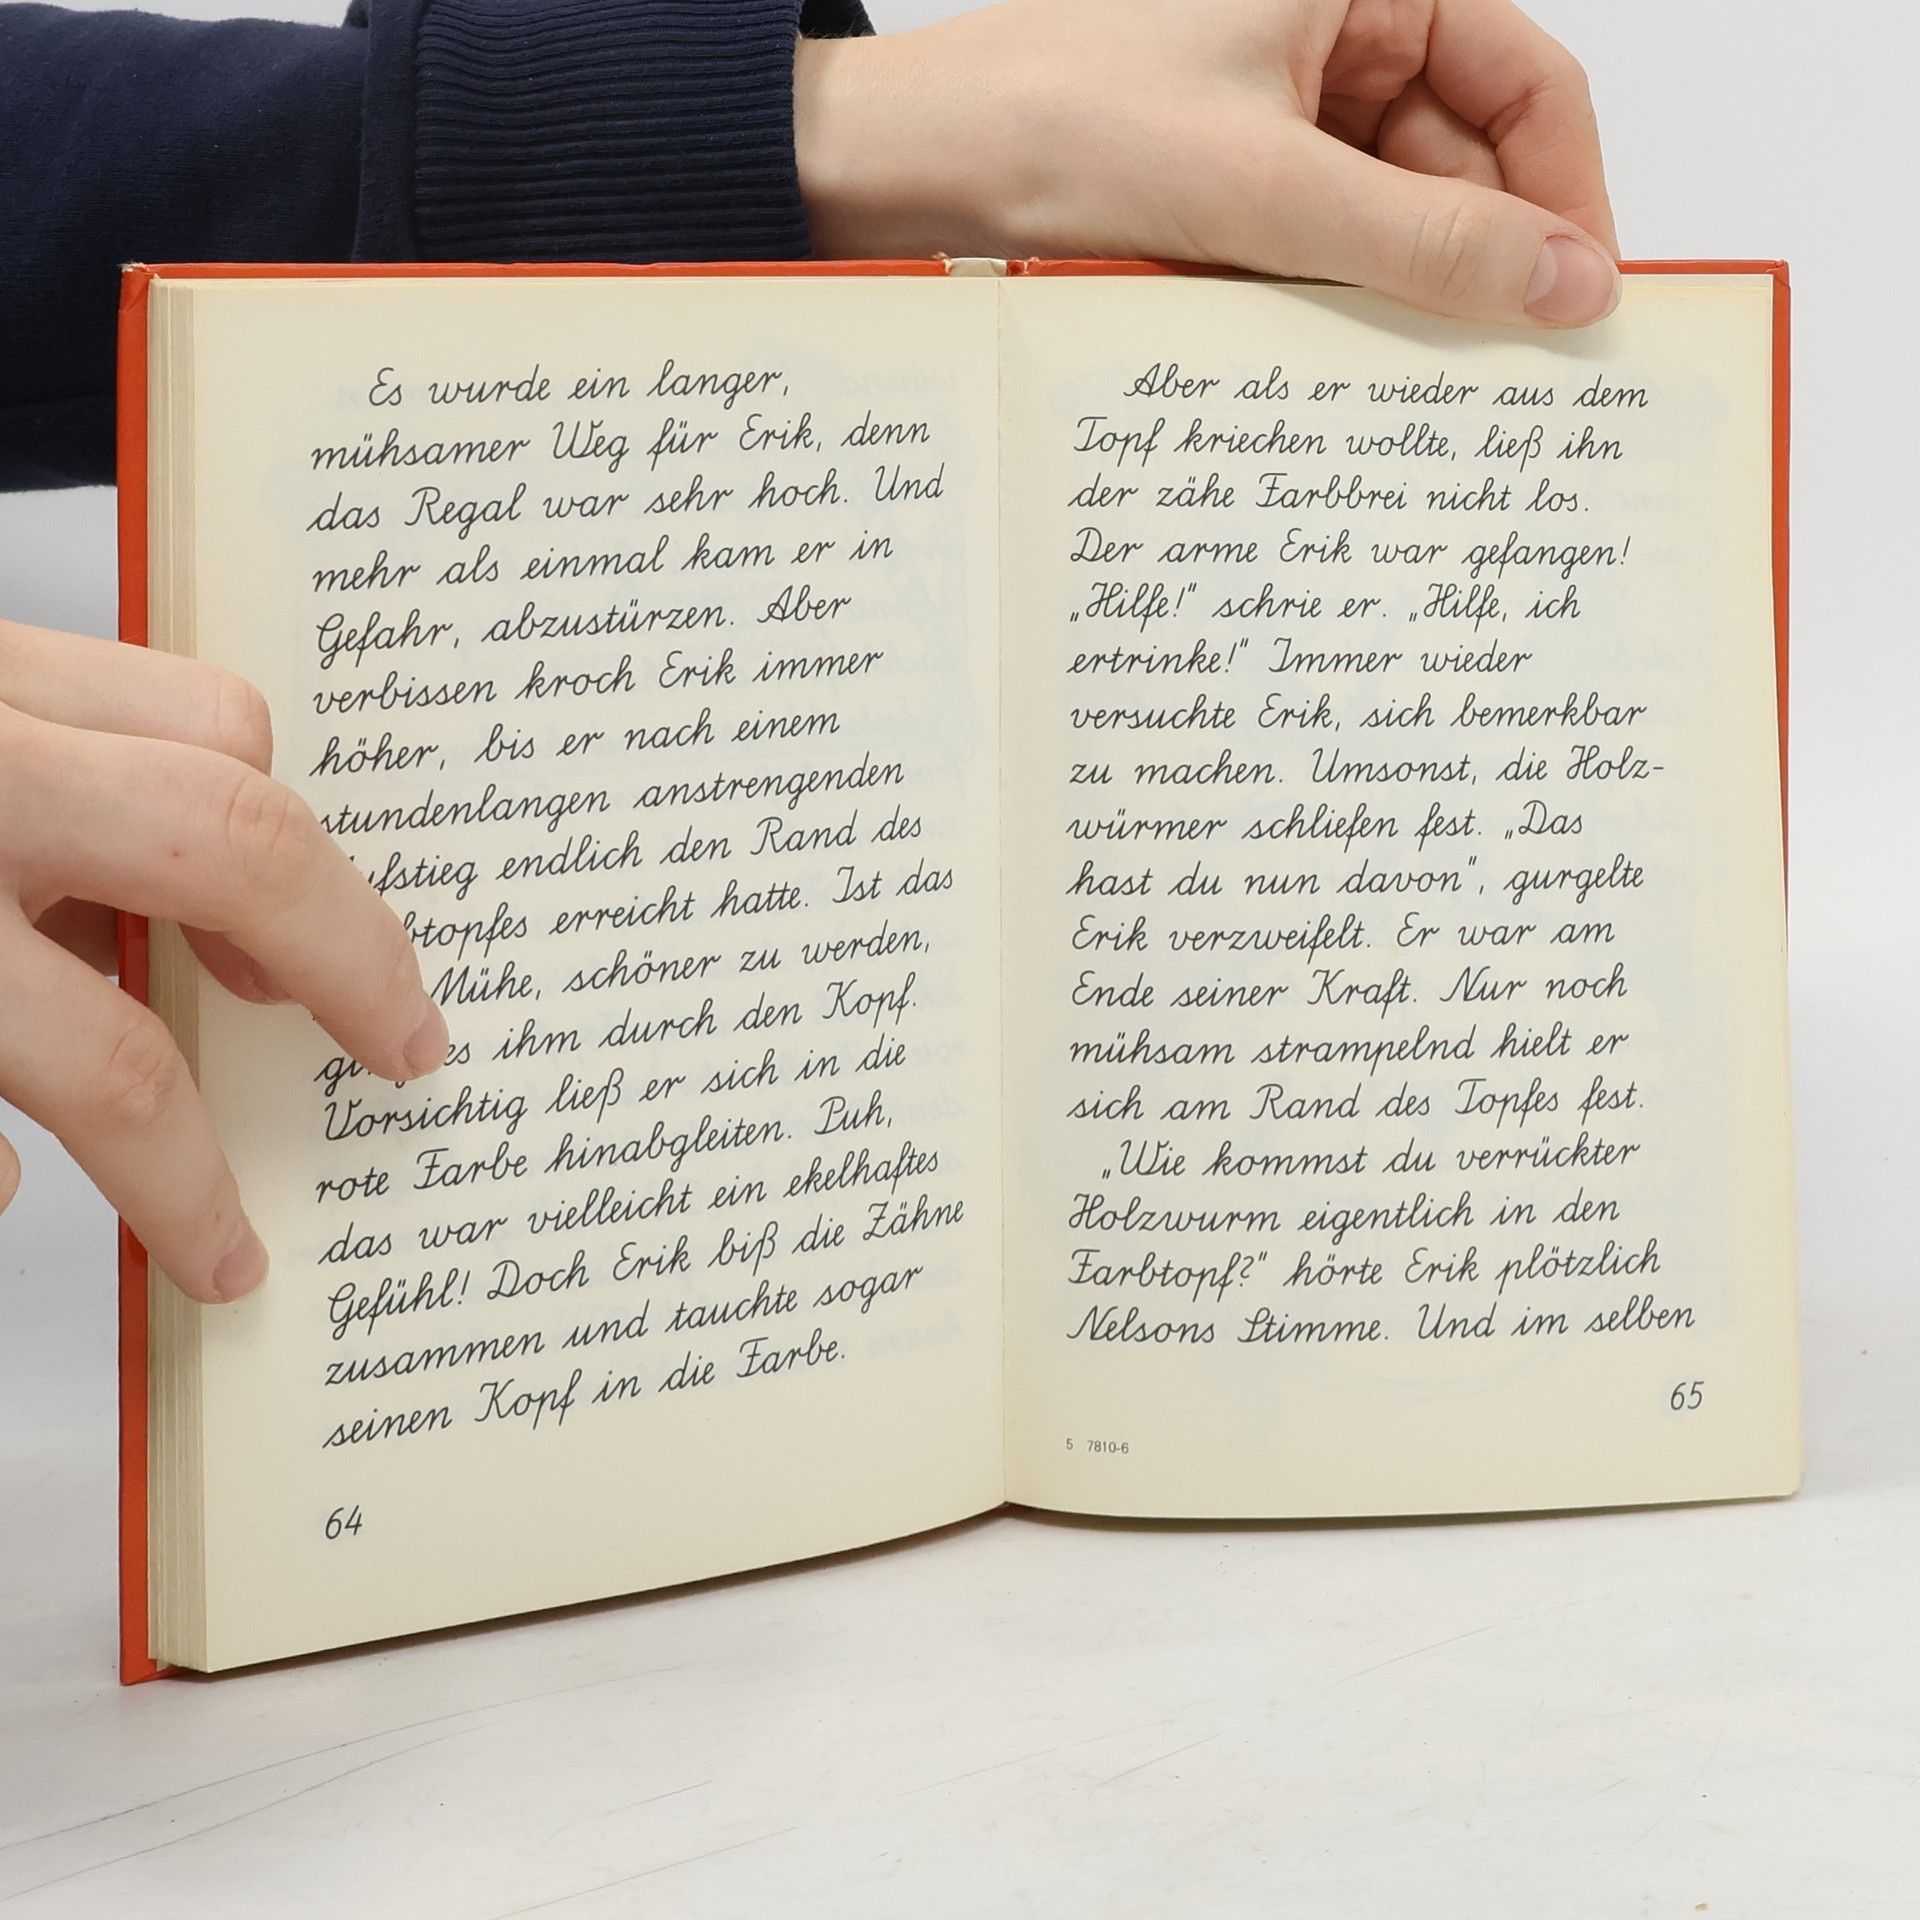 Es wurde ein langer,
mühsamer Weg für Erik, denn
das Regal war sehr hoch. Und
mehr als einmal kam er in
Gefahr, abzustürzen. Aber
verbissen kroch Erik immer
höher, bis er nach einem
stundenlangen anstrengenden
endlich den Rand des
erreicht hatte. Ist das
Mühe, schöner zu werden,
es ihm durch den Kopf.
Vorsichtig ließ er sich in die
rote Farbe hinabgleiten. Puh,
das war vielleicht ein ekelhaftes
Gefühl! Doch Erik biß die Zähne
zusammen und tauchte sogar
seinen Kopf in die Farbe.
64
Aber als er wieder aus dem
Topf kriechen wollte, ließ ihn
der zähe Farbbrei nicht los.
Der arme Erik war gefangen!
„Hilfe!" schrie er. „Hilfe, ich
ertrinke!" Immer wieder
versuchte Erik, sich bemerkbar
zu machen. Umsonst, die Holz-
würmer schliefen fest. „Das
hast du nun davon", gurgelte
Erik verzweifelt. Er war am
Ende seiner Kraft. Nur noch
mühsam strampelnd hielt er
sich am Rand des Topfes fest.
„Wie kommst du verrückter
Holzwurm eigentlich in den
Farbtopf?" hörte Erik plötzlich
Nelsons Stimme. Und im selben
65
5 7810-6